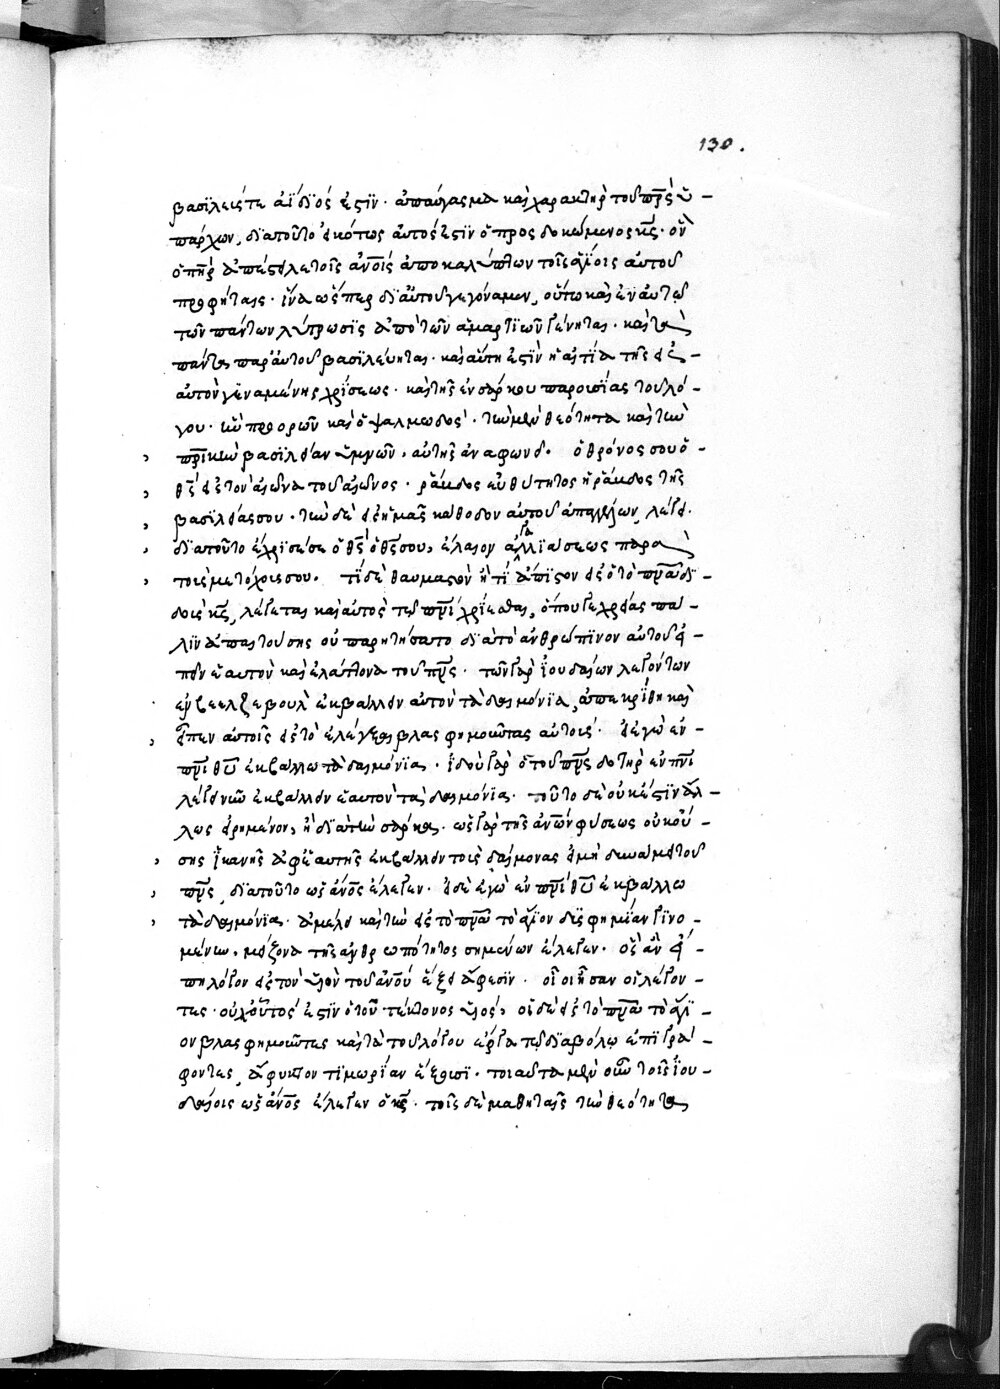 130.
βασϊλεις τε ἀΐδϊός ἐστϊν· ἀπαύγασμα καὶ χαρακτὴρ τοῦ πρ̅ς ὑ –
πάρχων, δϊατοῦτο εἰκότως αὐτός ἐστϊν ὁ προσδοκώμενος κ̅ς· ὃν
ὁ π̅ηρ ἀπέστειλε τοῖς ἀν̅οις ἀποκαλύπτων τοῖς ἁγίοις αὐτοῦ
προφήταις· ἵνα ὥσπερ δϊ αὐτοῦ γεγόναμεν, οὕτω καὶ ἐν αὐτῷ
τῶν πάντων λύτρωσϊς ἀπὸ τῶν ἁμαρτϊῶν γένηται· καὶ τὰ
πάντα παρ' αὐτοῦ βασϊλεύηται· καὶ αὕτη ἐστϊν ἡ αἰτία τῆς εἰς –
αὐτὸν γεναμένης χρίσεως· καὶ τῆς ἐνσάρκου παρουσίας τοῦ λό –
γου· ἣν προορῶν καὶ ὁ ψαλμωδός· τὴν μὲν θεότητα καὶ τὴν
πρ̅ϊκὴν βασϊλείαν ὑμνῶν, αὐτῆς ἀναφωνεῖ· ὁ θρόνος σου ὁ –
θ̅ς εἰς τὸν αἰῶνα τοῦ αἰῶνος· ῥάβδος εὐθύτητος ἡ ῥάβδος τῆς
βασϊλείας σου· τὴν δὲ εἰς ἡμᾶς κάθοδον αὐτοῦ ἀπαγγέλλων, λέγει·
δϊατοῦτο ἔχρϊσέ σε ὁ θ̅ς ὁ θ̅ς σου, ἔλαιον ἀγαλλϊάσεως παρὰ
τοὺς μετόχους σου· τί δὲ θαυμαστὸν ἢ τί ἄπϊστον εἰ ὁ τὸ πν̅α δϊ –
δοὺς κ̅ς, λέγεται καὶ αὐτὸς τῷ πν̅ι χρίεσθαι, ὅπου γε χρείας πά –
λϊν ἀπαιτούσης οὐ παρῃτήσατο δϊὰ τὸ ἀνθρώπϊνον αὐτοῦ εἰ –
πεῖν ἑαυτὸν καὶ ἐλάττονα τοῦ πν̅ς· τῶν γὰρ ἰουδαίων λεγόντων
ἐν βεελζεβοὺλ ἐκβάλλειν αὐτὸν τὰ δαιμόνϊα, ἀπεκρίθη καὶ
εἶπεν αὐτοῖς εἰς τὸ ἐλέγξαι βλασφημοῦντας αὐτούς· εἰ ἐγὼ ἐν –
πν̅ι θ̅υ ἐκβάλλω τὰ δαιμόνϊα· ἰδοὺ γὰρ ὁ τοῦ πν̅ς δοτὴρ ἐν πν̅ι
λέγει νῦν ἐκβάλλειν ἑαυτὸν τὰ δαιμόνϊα· τοῦτο δὲ οὐκ ἔστϊν ἄλ –
λως εἰρημένον, ἢ δϊὰ τὴν σάρκα· ὡς γὰρ τῆς ἀν̅ων φύσεως οὐκ οὔ –
σης ἱκανῆς ἀφ' ἑαυτῆς ἐκβάλλειν τοὺς δαίμονας εἰ μὴ δυνάμει τοῦ
πν̅ς, δϊατοῦτο ὡς ἄν̅ος ἔλεγεν· εἰ δὲ ἐγὼ ἐν πν̅ι θ̅υ ἐκβάλλω
τὰ δαιμόνϊα· ἀμέλει καὶ τὴν εἰς τὸ πν̅α τὸ ἅγϊον δυσφημίαν γϊνο –
μένην, μείζονα τῆς ἀνθρωπότητος σημαίνων ἔλεγεν· ὃς ἂν εἴ –
πῃ λόγον εἰς τὸν υἱὸν τοῦ ἀν̅ου ἕξει ἄφεσϊν· οἷοι ἦσαν οἱ λέγον –
τες· οὐχ οὗτός ἐστϊν ὁ τοῦ τέκτονος υἱός, οἱ δὲ εἰς τὸ πν̅α τὸ ἅγϊ –
ον βλασφημοῦντες καὶ τὰ τοῦ λόγου ἔργα τῷ δϊαβόλῳ ἐπϊγρά –
φοντες, ἄφυκτον τϊμωρίαν ἕξουσϊ· τοιαῦτα μὲν οὖν τοῖς ἰου –
δαίοις ὡς ἄν̅ος ἔλεγεν ὁ κ̅ς· τοῖς δὲ μαθηταῖς τὴν θεότητα